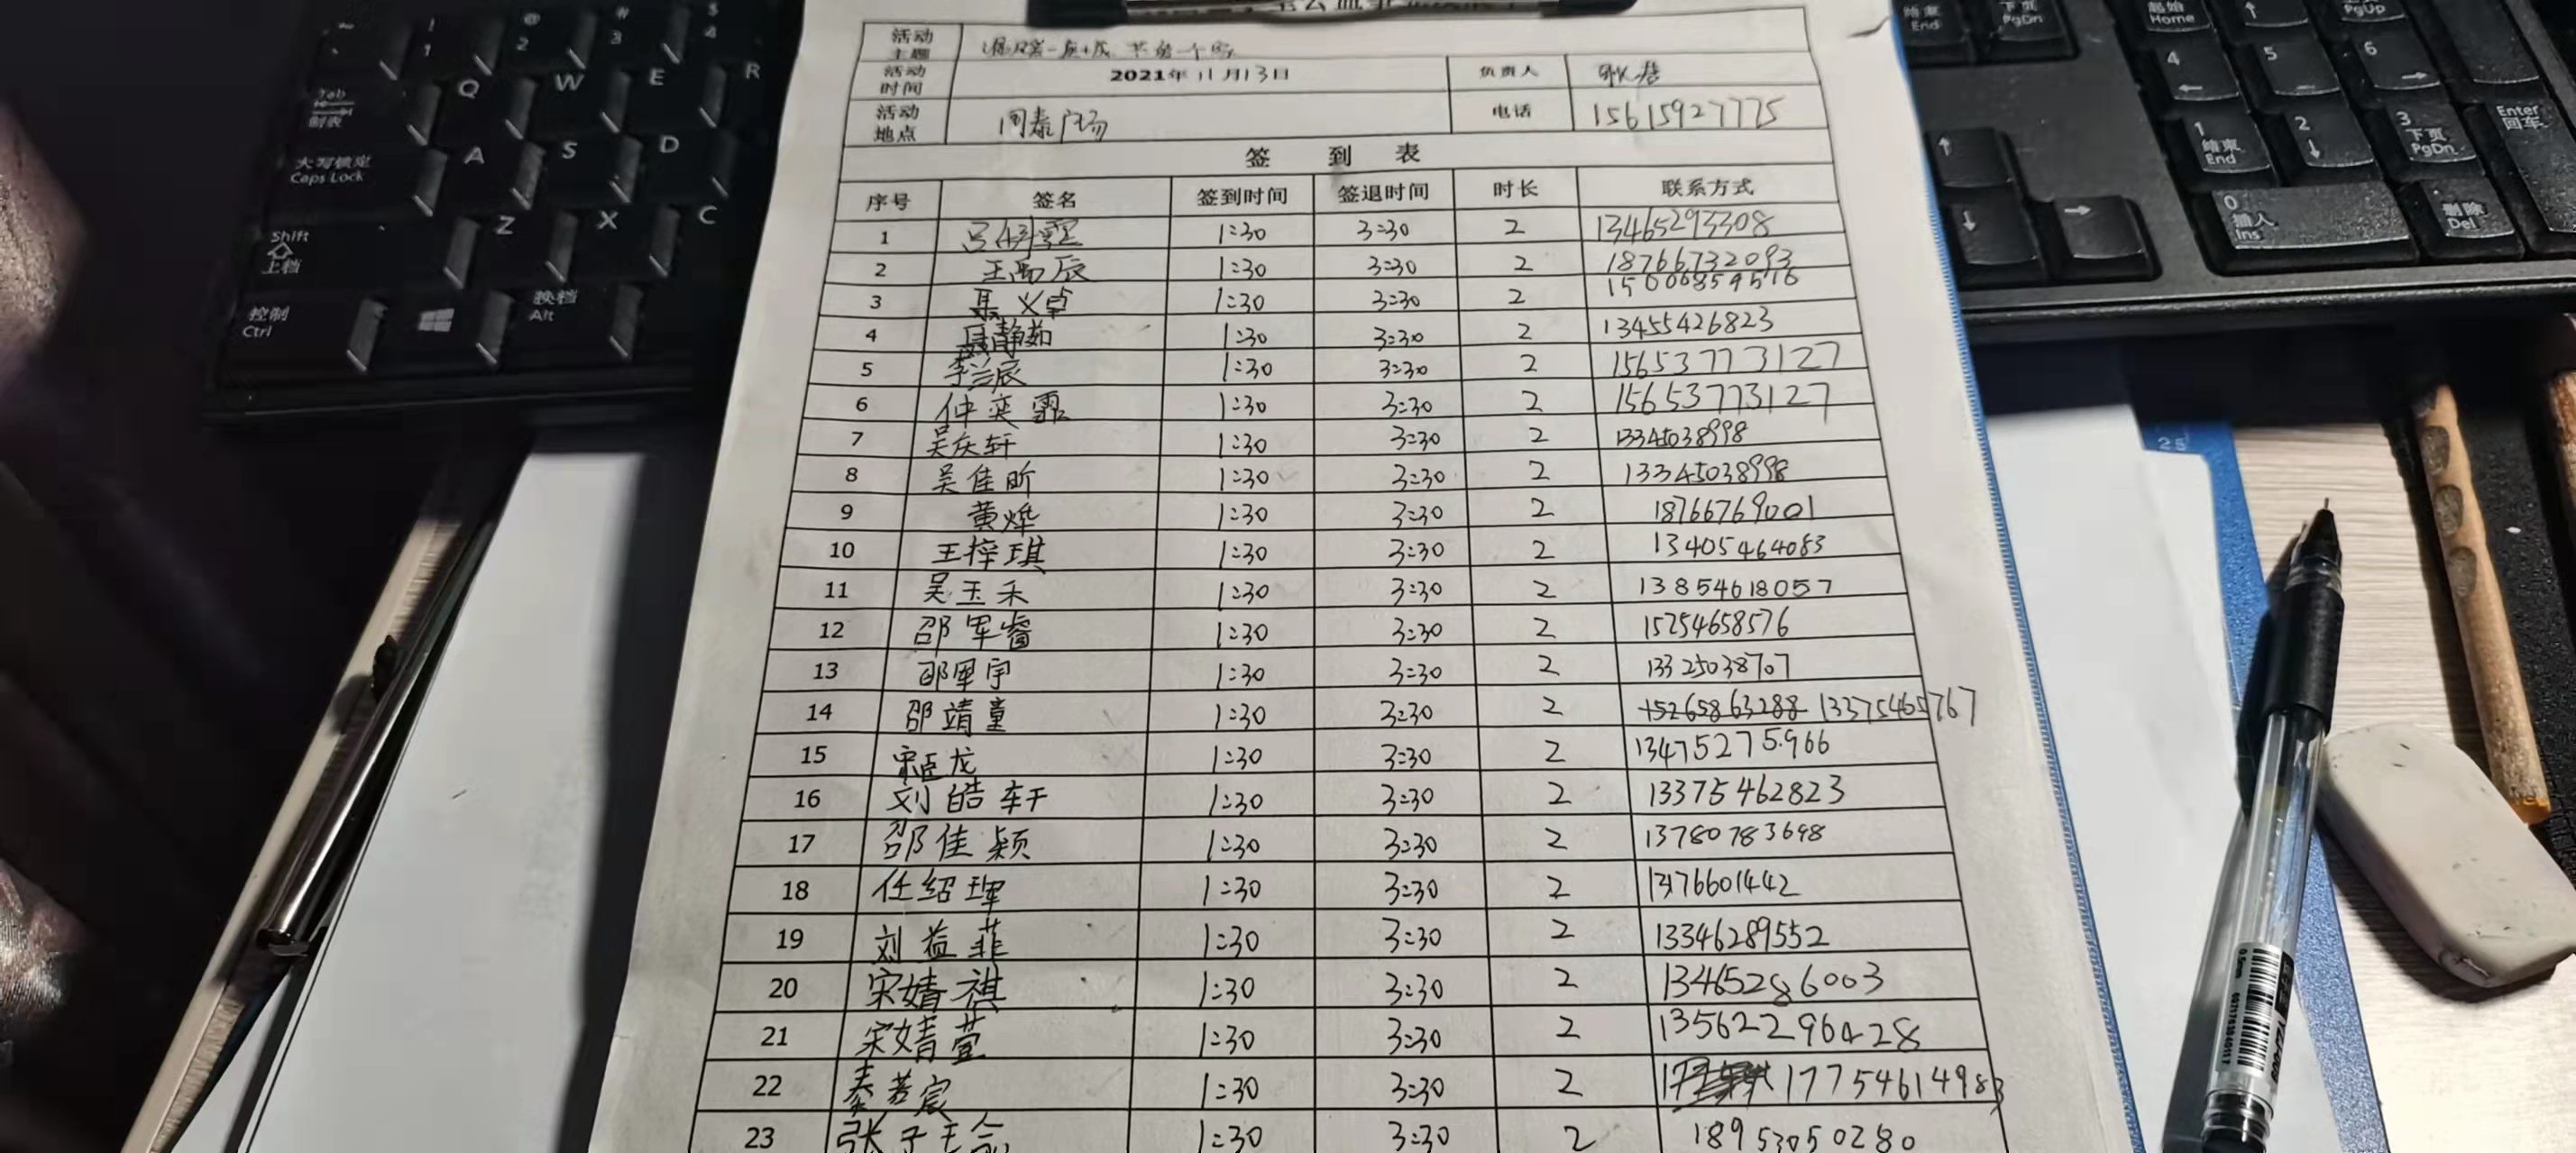 活动主题
活动时间 2021年11月13日 负责人
活动地点 同泰广场 电话 15615927775
签 到 表
序号 签名 签到时间 签退时间 时长 联系方式
1 1:30 3:30 2 13465293308
2 王禹辰 1:30 3:30 2 18766732093
3 聂义卓 1:30 3:30 2 15006859516
4 聂静茹 1:30 3:30 2 13455426823
5 李兰辰 1:30 3:30 2 15653773127
6 仲奕霏 1:30 3:30 2 15653773127
7 吴庆轩 1:30 3:30 2 13345038998
8 吴佳昕 1:30 3:30 2 13345038998
9 黄烨 1:30 3:30 2 18766769001
10 王梓琪 1:30 3:30 2 13405464083
11 吴玉禾 1:30 3:30 2 13854618057
12 邵军睿 1:30 3:30 2 15254658576
13 邵军宇 1:30 3:30 2 13325038707
14 邵靖童 1:30 3:30 2 15265863288 13375465767
15 宋臣龙 1:30 3:30 2 13475275966
16 刘皓轩 1:30 3:30 2 13375462823
17 邵佳颖 1:30 3:30 2 13780783698
18 任绍珲 1:30 3:30 2 13176601442
19 刘益菲 1:30 3:30 2 13346289552
20 宋婧祺 1:30 3:30 2 13465286003
21 宋婧萱 1:30 3:30 2 13562296428
22 秦若宸 1:30 3:30 2 17754614983
23 张子 1:30 3:30 2 18953050280
~ ! 1 @ 2 # 3 $ 4
Tab 制表 Q W E R
大写锁定 Caps Lock A S D
Shift 上档 Z X C
控制 Ctrl 换档 Alt
结束 End 下页 PgDn 起始 Home PgUp
4 5 6
1 结束 End 2 3 下页 PgDn Enter 回车
0 插入 Ins 删除 Del
25
0.5mm